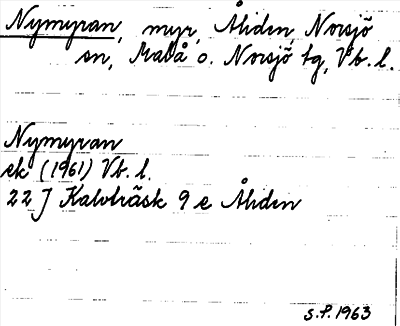 Nymyran, myr, Åliden, Norsjö
sn, Malå o. Norsjö tg, Vb. l.
Nymyran
ek (1961) Vb. l.
22 J Kalvträsk 9 e Åliden
S.P. 1963